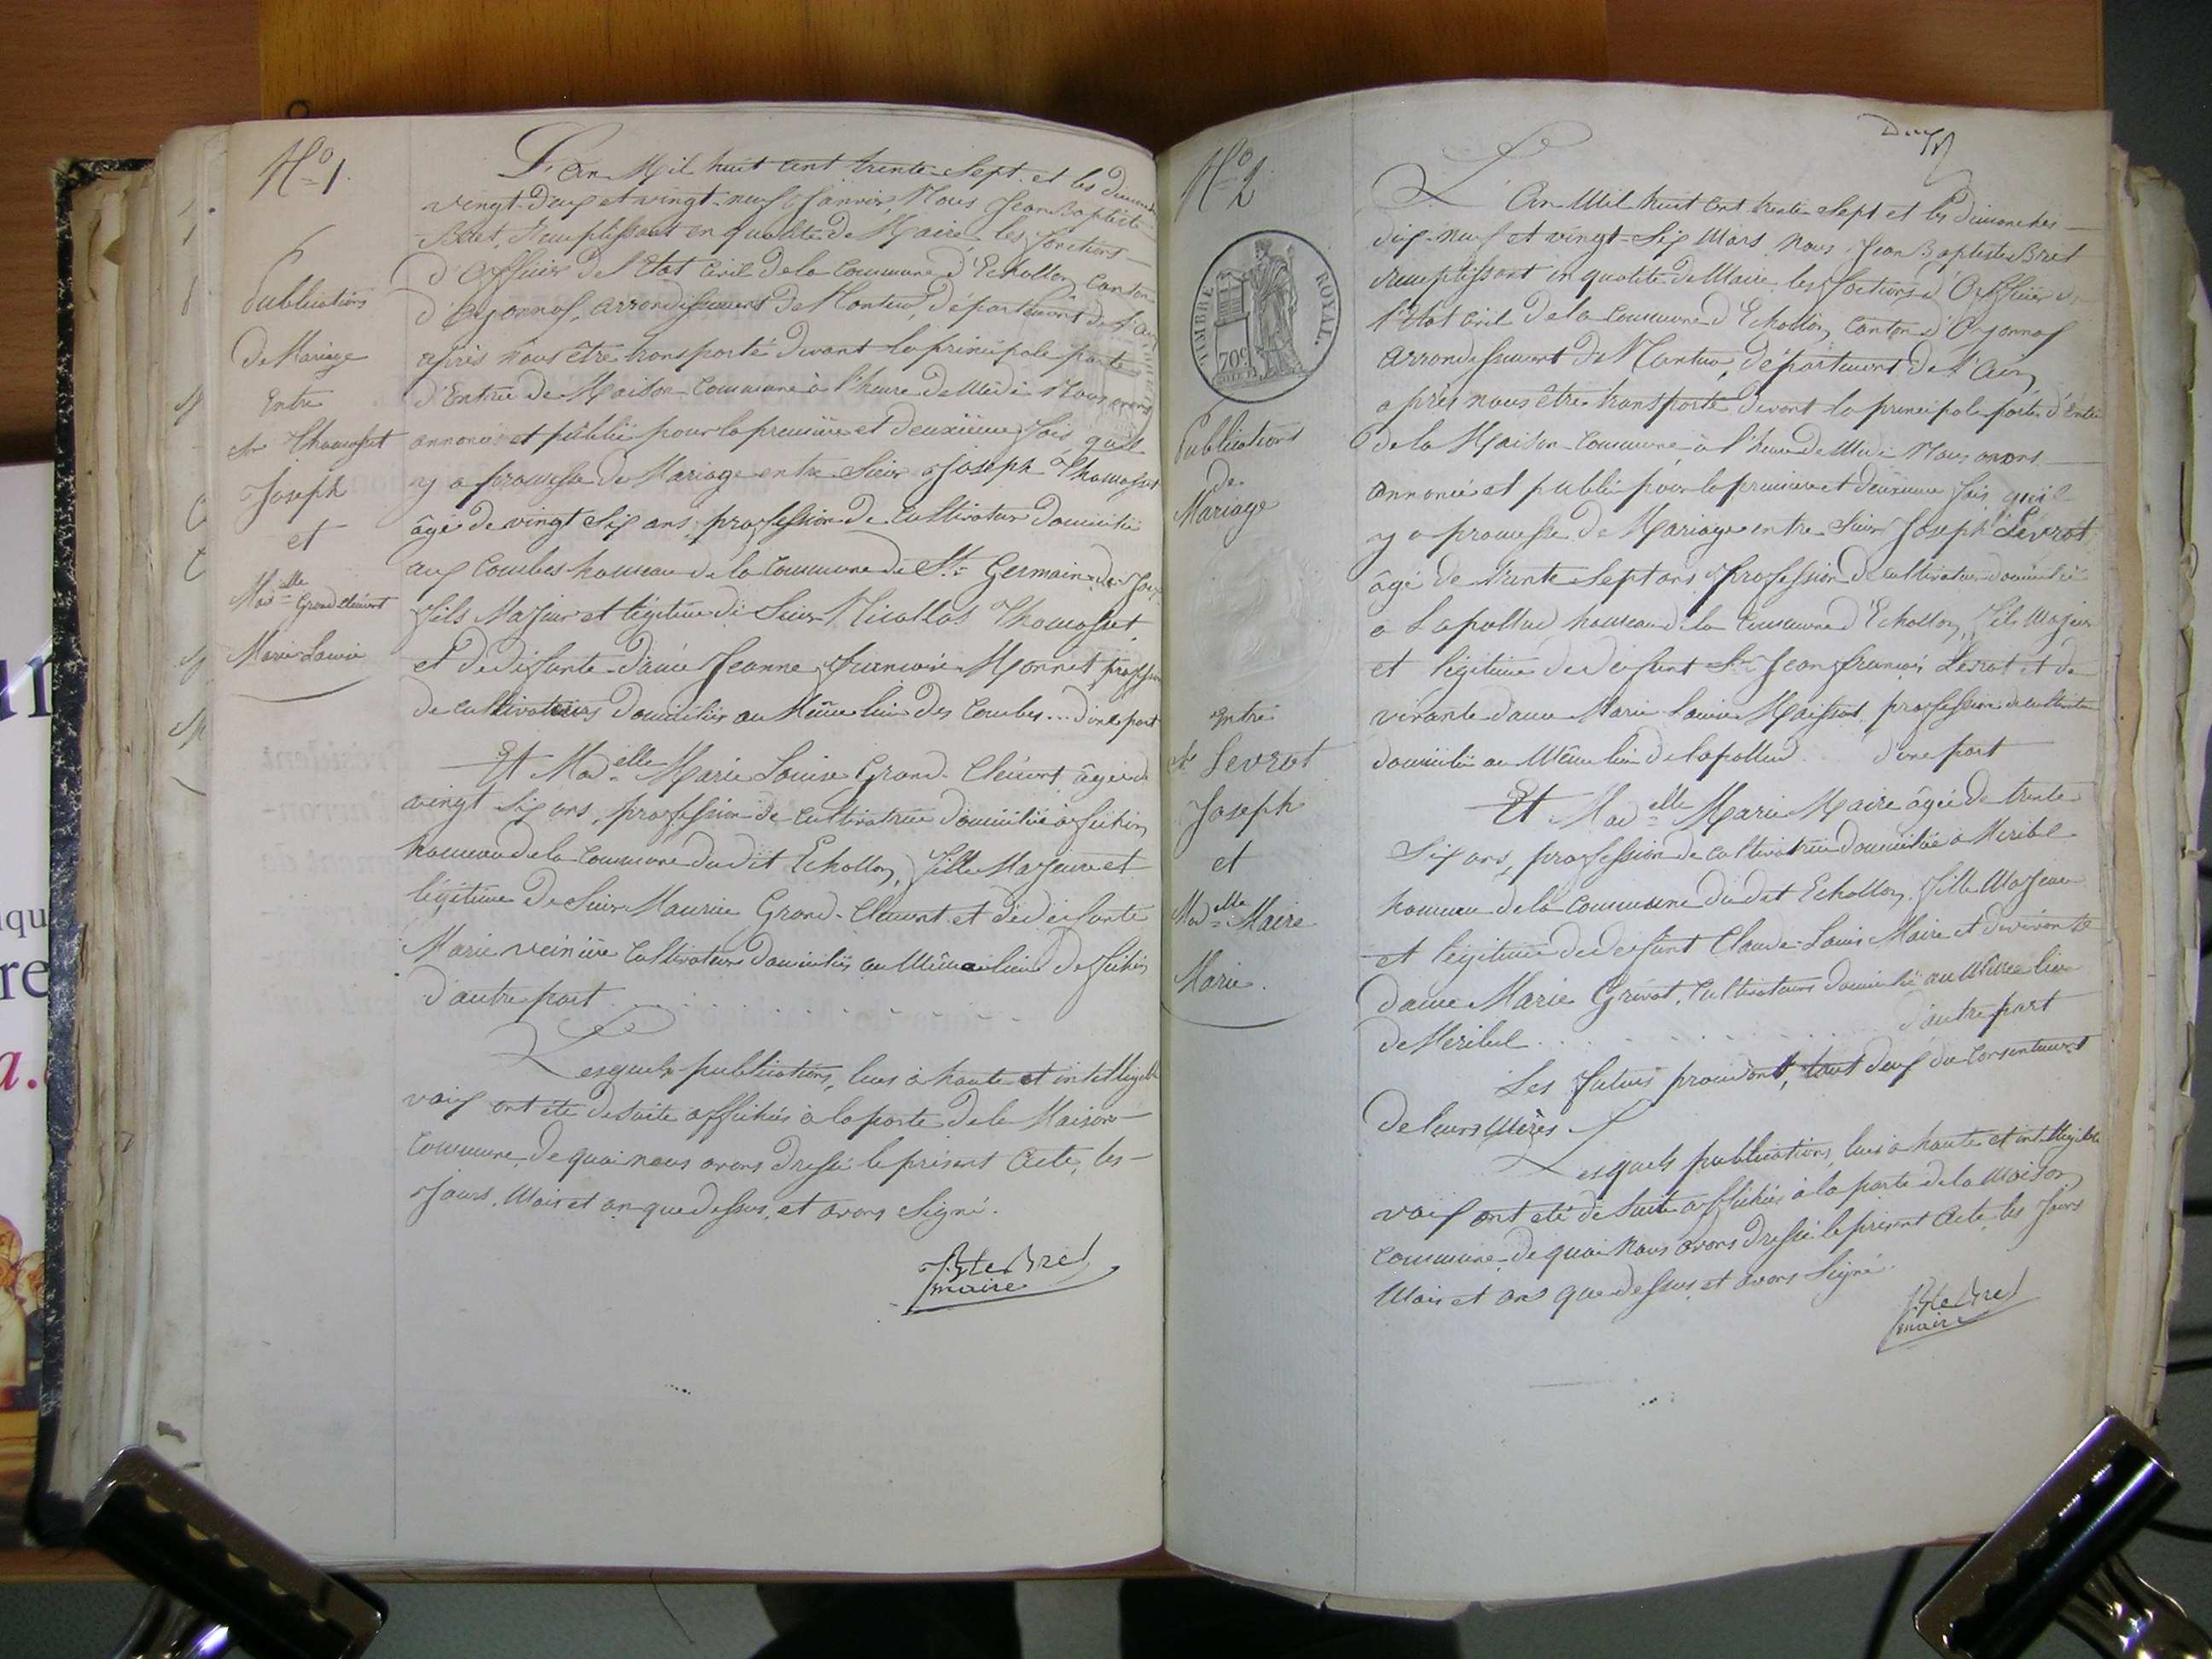 N° 1.
Publications
De Mariage
Entre
sr Thomasset
Joseph
et
Madelle Grand Clément
Marie Louise
L'an Mil huit cent trente-sept et les dimanches
vingt-deux et vingt-neuf Janvier, Nous Jean Baptiste
Bret, Remplissant en qualité de Maire, les fonctions
d'Officier de l'Etat Civil de la Commune d'Echallon, Canton
d'Oyonnax, arrondissement de Nantua, département de l'Ain
après nous être transporté devant la principale porte
d'Entrée de Maison Commune à l'heure de Midi Nous avons
annoncé et publié pour la première et deuxième fois, qu'il
y a promesse de Mariage entre sieur Joseph Thomasset
âgé de vingt six ans, profession de Cultivateur domicilié
aux Combes hameau de la Commune de St Germain-de-Joux
fils Majeur et légitime de sieur Nicollas Thomasset
et de défunte dame Jeanne françoise Monnet profession
de cultivateurs domiciliés au Même lieu des Combes... d'une part
Et Madelle Marie Louise Grand-Clément âgée de
vingt six ans, profession de Cultivatrice domiciliée à
hameau de la Commune du dit Echallon, fille Majeure et
légitime de Sieur Maurice Grand-Clément et de défunte
Marie Cultivateurs domiciliés au Même lieu de
d'autre part
Lesquels publications, lues à haute et intelligible
voix ont été de suite affichées à la porte de la Maison
Commune, de quoi nous avons dressé le présent Acte, les
Jours, Mois et an que dessus, et avons signé.
Jn Bte Bret
maire
Deux
N° 2
TIMBRE ROYAL.
70c
Publications
de
Mariage
Entre
sr Levrat
Joseph
et
Madelle Maire
Marie.
L'An Mil huit cent trente sept et les dimanches
dix-neuf et vingt-six Mars Nous Jean Baptiste Bret
remplissant en qualité de Maire, les fonctions d'Officier de
l'Etat Civil de la Commune d'Echallon, Canton d'Oyonnax
arrondissement de Nantua, département de l'Ain,
après nous être transporté devant la principale porte d'Entrée
de la Maison Commune à l'heure de Midi Nous avons
annoncé et publié pour la première et deuxième fois qu'il
y a promesse de Mariage entre Sieur Joseph Levrat
âgé de trente sept ans profession de cultivateur domicilié
a Lapollud hameau de la Commune d'Echallon, fils Majeur
et légitime de défunt Sr Jean françois Levrat et de
vivante dame Marie Louise Maissiat profession de cultivatrice
domicilié au Même lieu de Lapollud d'une part
Et Madelle Marie Maire âgée de trente
six ans, profession de cultivatrice domiciliée à Meribel
hameau de la Commune du dit Echallon. fille Majeure
et légitime de défunt Claude-Louis Maire et de vivante
dame Marie Grivat, Cultivateurs domicilié au Même lieu
de Meribel d'autre part
Les futurs procèdent, tout deux du Consentement
de leurs Mères
Lesquels publications, lues à haute et intelligible
voix ont été de suite affichées à la porte de la Maison
Commune de quoi Nous avons dressé le présent Acte les Jours
Mois et ans que dessus et avons signé.
Jn Bte Bret
maire